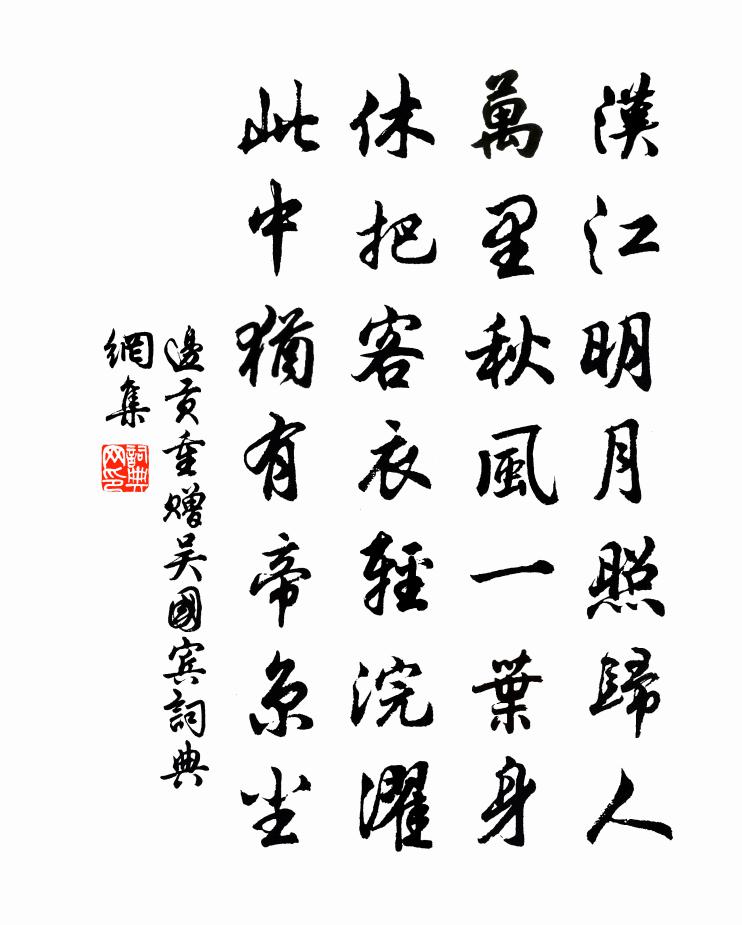 漢江明月照歸人
萬里秋風一葉身
休把客衣輕浣濯
此中猶有帝京塵
邊貢重贈吴國賓詞典
網集
詞典
网印